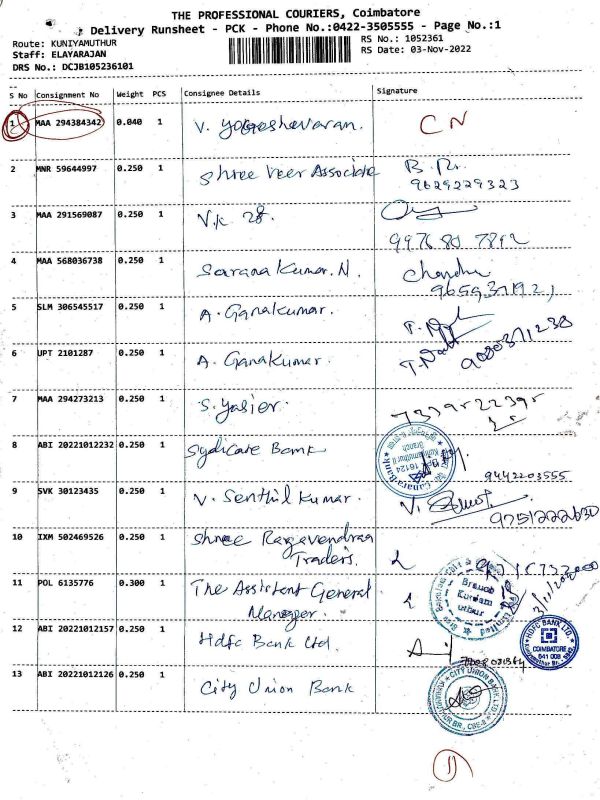 THE PROFESSIONAL COURIERS, Coimbatore
Delivery Runsheet - PCK - Phone No.:0422-3505555 - Page No.:1
Route: KUNIYAMUTHUR RS No.: 1052361
Staff: ELAYARAJAN RS Date: 03-Nov-2022
DRS No.: DCJB105236101
S No Consignment No Weight PCS Consignee Details Signature
1 MAA 294384342 0.040 1 V. Yogeshwaran. CN
2 MNR 59644997 0.250 1 Shree Veer Associate
9629229323
3 MAA 291569087 0.250 1 V.K 28.
99768078
4 MAA 568036738 0.250 1 Sarana Kumar. N. Chandru
5 SLM 306545517 0.250 1 A. Ganakumar.
6 UPT 2101287 0.250 1 A. Ganakumar.
7 MAA 294273213 0.250 1 S. Yasier.
8 ABI 20221012232 0.250 1 Sydicate Bank
Canara Bank
16124
Branch
9442203555
9 SVK 30123435 0.250 1 V. Senthil Kumar. V.
10 IXM 502469526 0.250 1 Shree Ragavendraa
Traders.
11 POL 6135776 0.300 1 The Assistent General
Manager.
Branch
12 ABI 20221012157 0.250 1 Hdfc Bank Ltd.
HDFC BANK LTD.
COIMBATORE
641 008
13 ABI 20221012126 0.250 1 City Union Bank
CITY UNION BANK LTD.
11